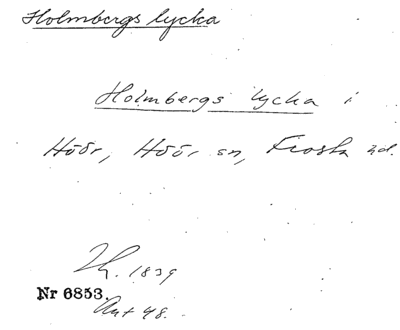 Holmbergs lycka
Holmbergs lycka i
Höör, Höör sn, Frosta hd.
Lh. 1839
Nr 6853.
Ant 48.